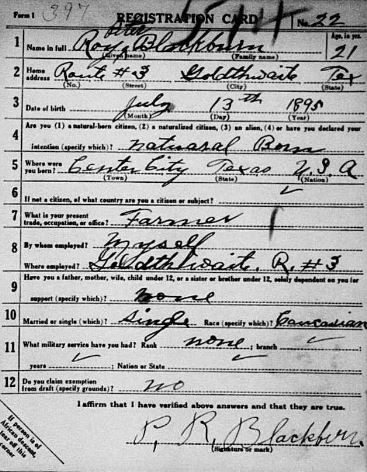 Form 1 397 REGISTRATION CARD No. 22
1 Name in full Roy Blackburn Age, in yrs. 21
(Given name) (Family name)
2 Home address Route #3 Goldthwaite Tex
(No.) (Street) (City) (State)
3 Date of birth July 13th 1895
(Month) (Day) (Year)
4 Are you (1) a natural-born citizen, (2) a naturalized citizen, (3) an alien, (4) or have you declared your
intention (specify which)? Natural Born
5 Where were you born? Center City Texas U.S.A
(Town) (State) (Nation)
6 If not a citizen, of what country are you a citizen or subject?
7 What is your present trade, occupation, or office? Farmer
8 By whom employed? Myself
Where employed? Goldthwaite. R. #3
9 Have you a father, mother, wife, child under 12, or a sister or brother under 12, solely dependent on you for
support (specify which)? none
10 Married or single (which)? Single Race (specify which)? Caucasian
11 What military service have you had? Rank none ; branch
years ; Nation or State
12 Do you claim exemption from draft (specify grounds)? no
I affirm that I have verified above answers and that they are true.
P. R. Blackburn
(Signature or mark)
If person is of African descent, tear off this corner.